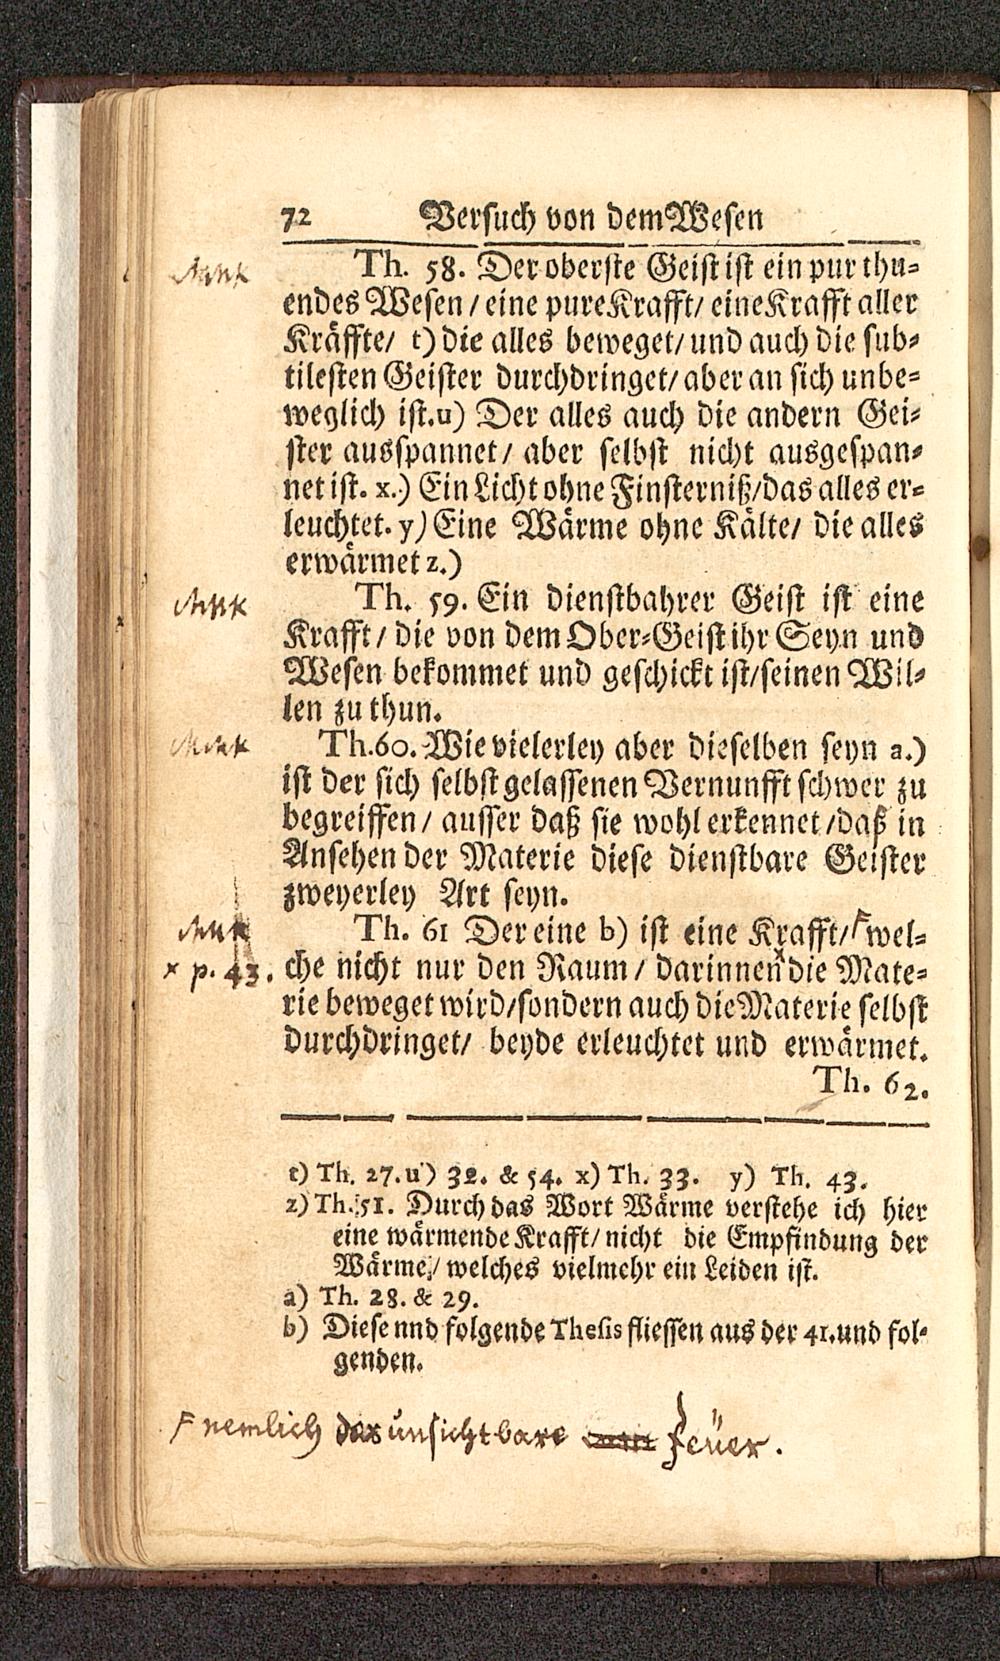 72 Versuch von dem Wesen
Th. 58. Der oberste Geist ist ein pur thu⸗
endes Wesen / eine pure Krafft / eine Krafft aller
Kräffte / t) die alles beweget / und auch die sub⸗
tilesten Geister durchdringet / aber an sich unbe⸗
weglich ist. u) Der alles auch die andern Gei⸗
ster ausspannet / aber selbst nicht ausgespan⸗
net ist. x.) Ein Licht ohne Finsterniß / das alles er⸗
leuchtet. y) Eine Wärme ohne Kälte / die alles
erwärmet z.)
Th. 59. Ein dienstbahrer Geist ist eine
Krafft / die von dem Ober⸗Geist ihr Seyn und
Wesen bekommet und geschickt ist / seinen Wil⸗
len zu thun.
Th. 60. Wie vielerley aber dieselben seyn a.)
ist der sich selbst gelassenen Vernunfft schwer zu
begreiffen / ausser daß sie wohl erkennet / daß in
Ansehen der Materie diese dienstbare Geister
zweyerley Art seyn.
Th. 61 Der eine b) ist eine Krafft / F wel⸗
x p. 43. che nicht nur den Raum / darinnen x die Mate⸗
rie beweget wird / sondern auch die Materie selbst
durchdringet / beyde erleuchtet und erwärmet.
Th. 62.
t) Th. 27. u) 32. & 54. x) Th. 33. y) Th. 43.
z) Th. 51. Durch das Wort Wärme verstehe ich hier
eine wärmende Krafft / nicht die Empfindung der
Wärme / welches vielmehr ein Leiden ist.
a) Th. 28. & 29.
b) Diese nnd folgende Thesis fliessen aus der 41. und fol⸗
genden.
F nemlich das unsichtbare feüer.